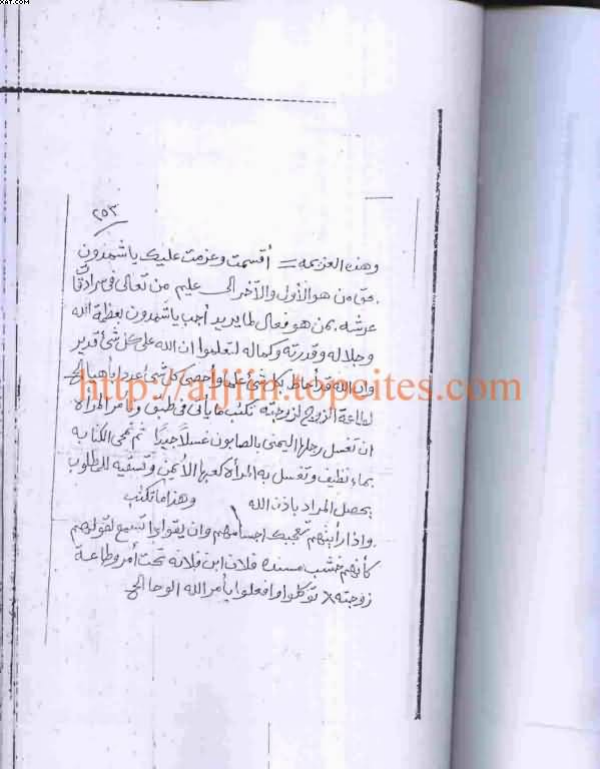 XAT.COM
٢٥٣
وهذه العزيمه = أقسمت وعزمت عليك يا شمدون
بحق من هو الأول والآخر الحى عليم من تعالى فى
عرشه بمن هو فعال لما يريد أجب يا شمدون بعظمة الله
وجلاله وقدرته وكماله لتعلموا ان الله على كل شئ قدير
وان الله قد أحاط بكل شئ علما واحصى كل شئ عددا
http://aljiin.topcites.com
لطاعة الزوج لزوجته تكتب ما يأتى فى طبق وتأمر المرأة
ان تغسل رجلها اليمنى بالصابون غسلا جيدا ثم تمحى الكتابه
بماء نظيف وتغسل به المرأة كعبها الأيمن وتسقيه للمطلوب
يحصل المراد باذن الله وهذا ما تكتب
واذا رأيتهم تعجبك اجسامهم وان يقولوا تسمع لقولهم
كأنهم خشب مسنده فلان ابن فلانه تحت أمر وطاعة
زوجته توكلوا وافعلوا بأمر الله الوحا الخ